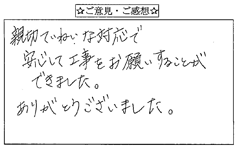 ☆ご意見・ご感想☆
親切ていねいな対応で
安心して工事をお願いすることが
できました。
ありがとうございました。